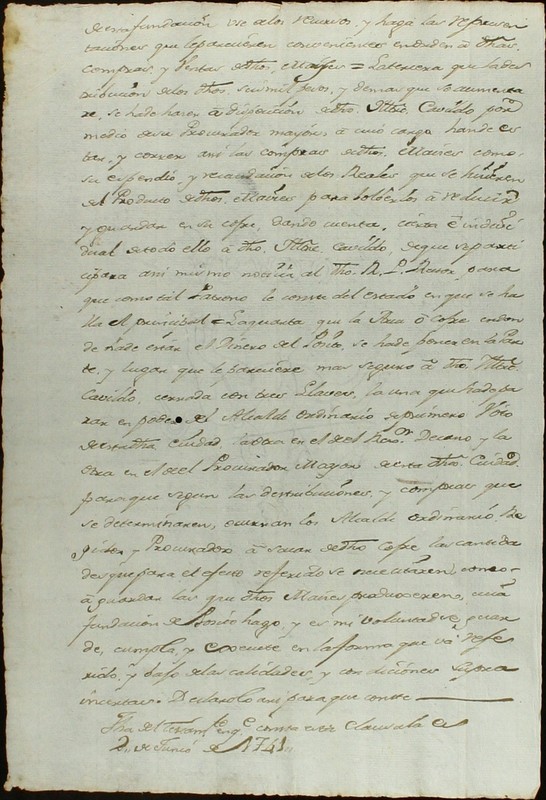 de mi fundación use de los recursos, y haga las represen
taciones que le parecieren convenientes en orden a dhas.
compras, y Ventas de dho, Maises = La tercera que la dis
tribucion de los dhos. seis mil pesos, y demas que se aumenta
re, se ha de hacer à disposición de dho. Illtre. Cavildo por
medio de su Procurador mayor, à cuio cargo han de es
tar, y correr asi las compras de dhos. Maises como
su expendio, y recaudacion de los Reales que se hisieren
del Producto de dhos, Maises para bolberlos à reducir
y guardar en su cofre, dando cuenta, cierta è indivi
dual de todo ello à dho, Illtre Cavildo, de que se parti
cipara asi mismo noticia al dho. R. P. Rector, para
que como tal Patrono le conste del estado en que se ha
lla el principal = La quarta que la Arca ô Cofre en don
de ha de estar el Dinero del Posito, se ha de poner en la Par
te, y lugar que le pareciere mas seguro à dho. Illtre
Cavildo, cerrada con tres Llaves, la una que ha de pa
rar en poder del Alcalde Ordinario de primero Voto
de esta dha Ciudad, la otra en el de el Regor. Decano, y la
otra en el de el Procurador Mayor de esta dha. Ciudad
para que segun las destribuciones, y compras que
se determinaren, ocurran los Alcalde Ordinario, Re
gidor, y Procurador à sacar de dho Cofre las cantida
des que para el efecto referido se necesitaren, como
à guardar las que dhos Maises produxeren, cuia
fundacion de Posito hago, y es mi voluntad se guar
de, cumpla, y execute en la forma que va refe
rido, y bajo de las calidades, y condiciones supra
incertas. Declarolo asi para que conste
Fha del testamto. en qe. consta este clausula es
2,, de Junio de 1741,,